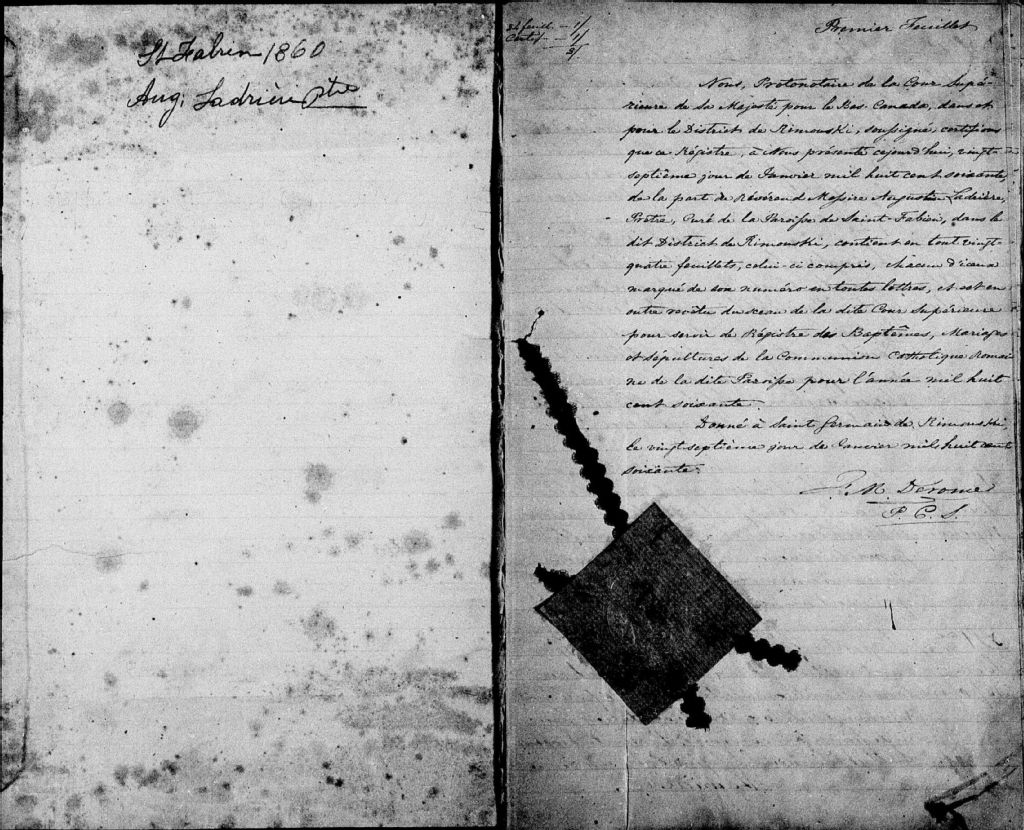 St Fabien 1860
Aug: Ladrière ptre
24 feuill. — 1/
Certif — 1/
2/
Premier Feuillet
Nous, Protonotaire de la Cour Supé-
rieure de Sa Majesté pour le Bas Canada, dans et
pour le District de Rimouski, soussigné, certifions
que ce Régistre, à Nous présenté cejourd'hui, vingt-
septième jour de Janvier mil huit cent soixante,
de la part de Révérend Messire Augustin Ladrière,
Prêtre, Curé de la Paroisse de Saint-Fabien, dans le
dit District de Rimouski, contient en tout vingt-
quatre feuillets, celui-ci compris, chacun d'iceux
marqué de son numéro en toutes lettres, et est en
outre revêtu du sceau de la dite Cour Supérieure
pour servir de Régistre des Baptêmes, Mariages
et Sépultures de la Communion Catholique Romai
ne de la dite Paroisse pour l'année mil huit
cent soixante.
Donné à Saint Germain de Rimouski,
le vingt septième jour de Janvier mil huit cent
soixante.
M. Derome
P. C. S.